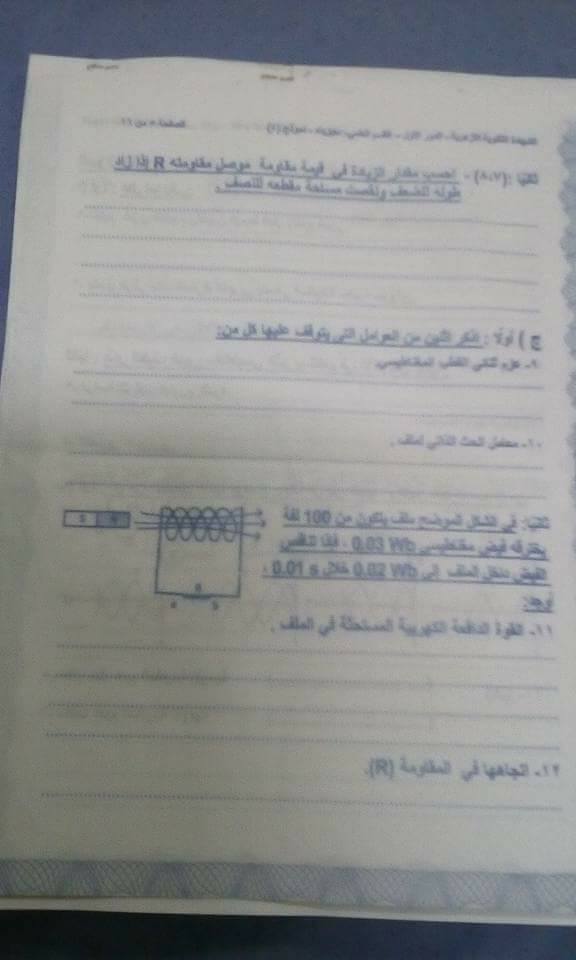 الشهادة الثانوية الأزهرية - الدور الأول - القسم العلمي - فيزياء - نموذج (أ)
الصفحة ٥ من ١١
ثانيًا :(٨،٧) - احسب مقدار الزيادة في قيمة مقاومة موصل مقاومته R إذا زاد
طوله للضعف ونقصت مساحة مقطعه للنصف .
ج ) أولًا : اذكر اثنين من العوامل التي يتوقف عليها كل من:
٩- عزم ثنائي القطب المغناطيسي
١٠- معامل الحث الذاتي لملف .
ثانيًا: في الشكل الموضح ملف يتكون من 100 لفة
يخترقه فيض مغناطيسي 0.03 Wb ، فإذا تناقص
الفيض داخل الملف إلى 0.02 Wb خلال 0.01 s ،
أوجد:
S N
R
a b
١١- القوة الدافعة الكهربية المستحثة في الملف .
١٢- اتجاهها في المقاومة (R).